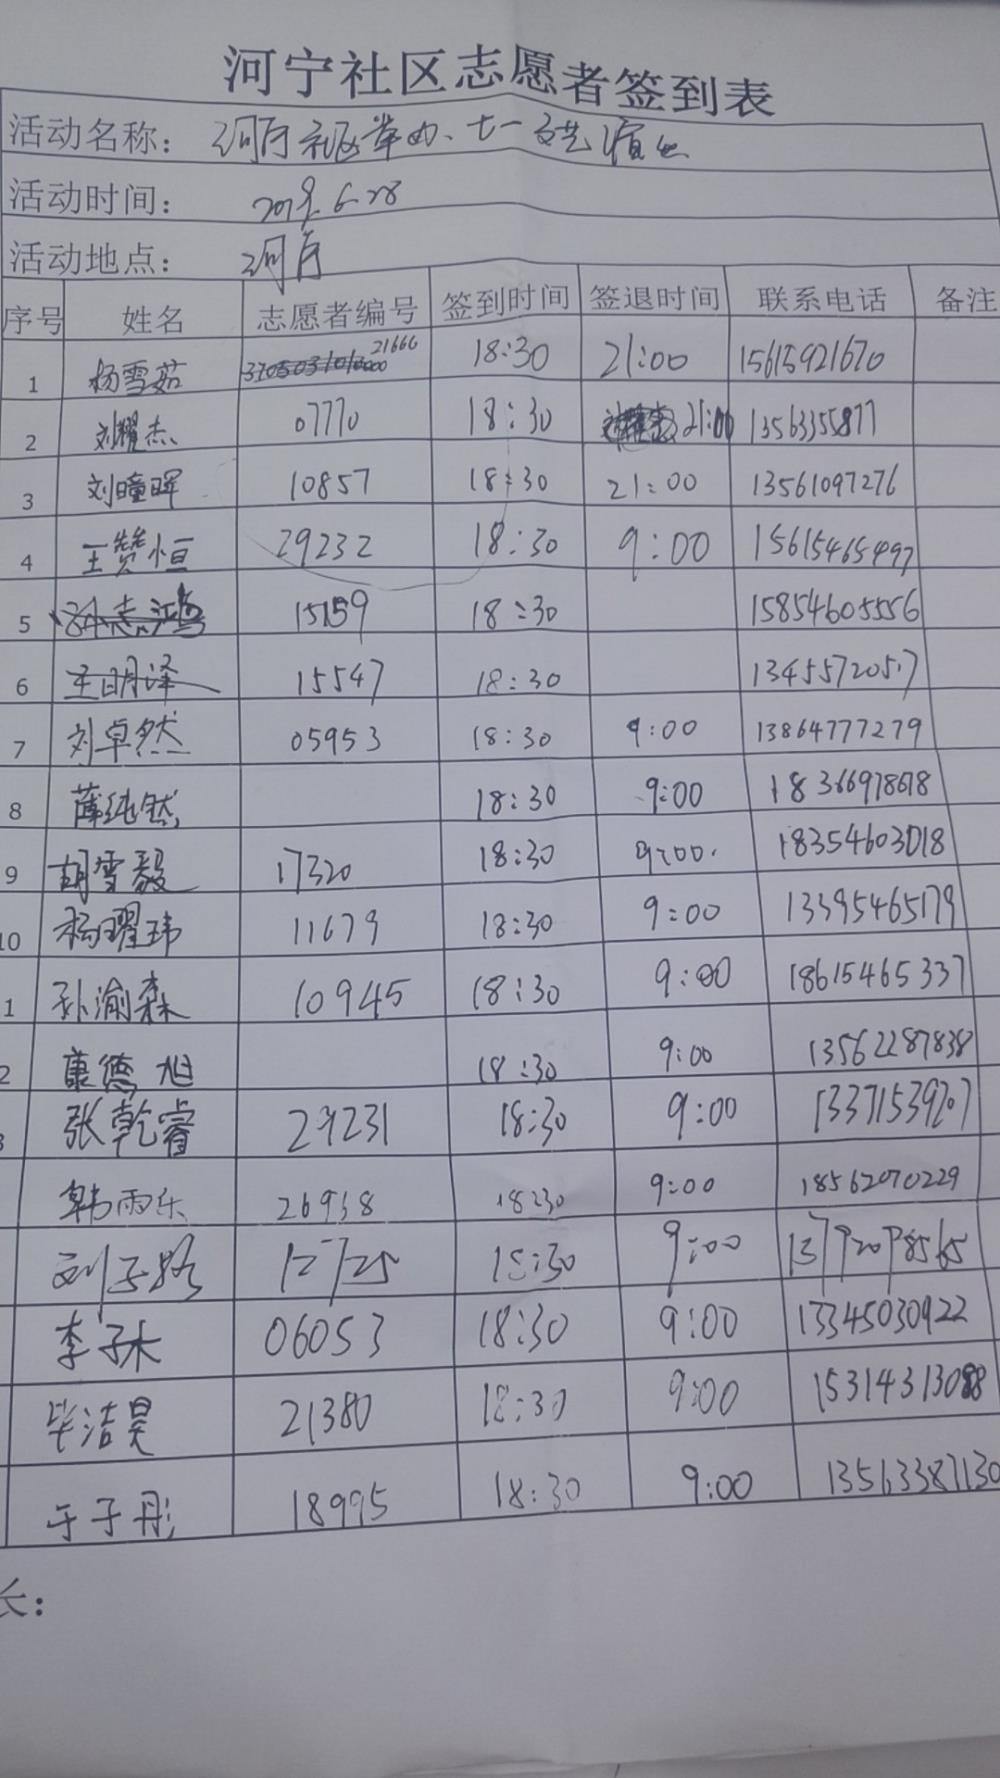 河宁社区志愿者签到表
活动名称： 河宁社区举办、七一文艺演出
活动时间： 2019.6.28
活动地点： 河宁
序号 姓名 志愿者编号 签到时间 签退时间 联系电话 备注
1 杨雪茹 21666 18:30 21:00 15615921670
2 刘耀杰 07770 18:30 21:00 13563355877
3 刘曈晖 10857 18:30 21:00 13561097276
4 王赞恒 29232 18:30 9:00 15615465497
5 孙志鸿 15159 18:30 15854605556
6 王明泽 15547 18:30 13455720517
7 刘卓然 05953 18:30 9:00 13864777279
8 薛纯然 18:30 9:00 18366978678
9 胡雪毅 17320 18:30 9:00. 18354603018
10 杨曜玮 11679 18:30 9:00 13395465179
1 孙渝森 10945 18:30 9:00 18615465337
2 康德旭 18:30 9:00 13562287838
3 张乾睿 29231 18:30 9:00 13371539207
韩雨乐 26938 18:30 9:00 18562070229
刘子路 12725 18:30 9:00 13792098565
李子木 06053 18:30 9:00 13345030922
毕洁昊 21380 18:30 9:00 15314313088
于子彤 18995 18:30 9:00 13563387130
长：